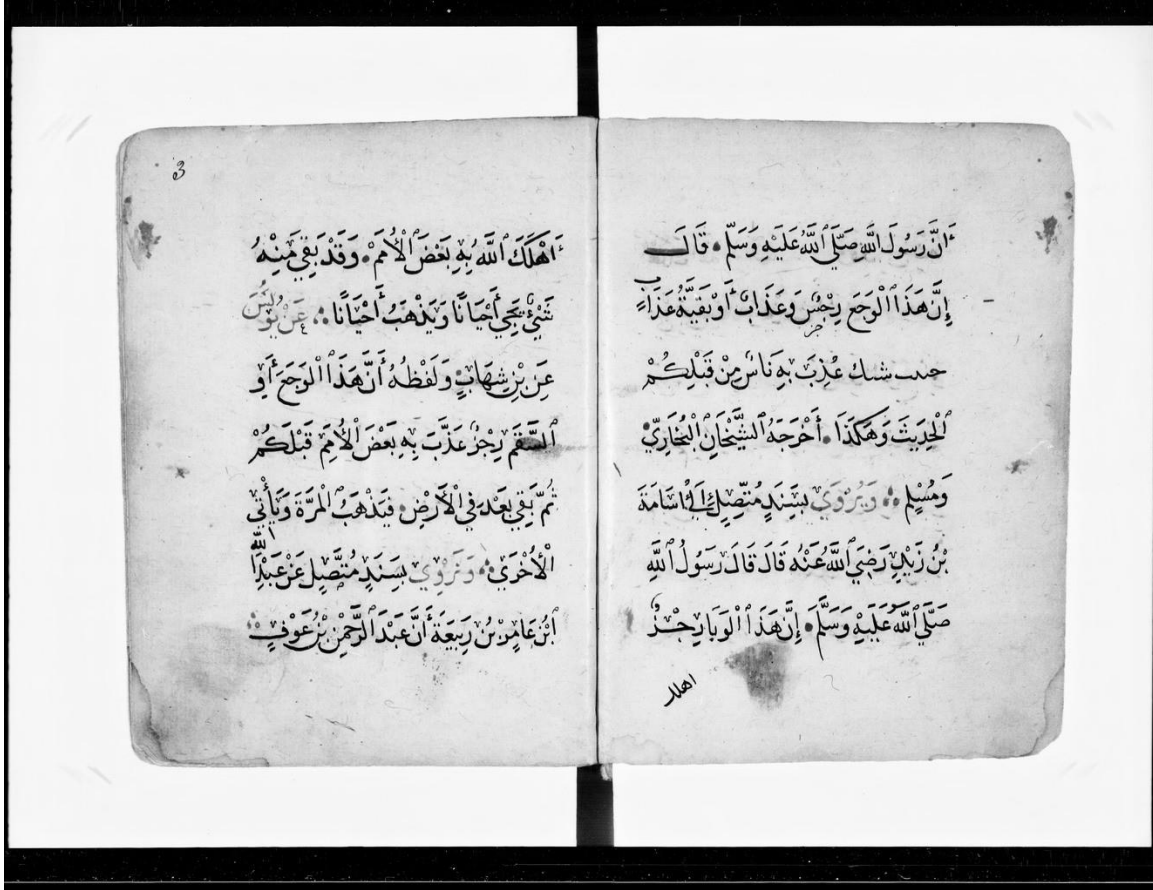 أنَّ رَسُولَ اللَّهِ صَلَّى ٱللَّهُ عَلَيْهِ وَسَلَّمَ • قَالَ
إِنَّ هَذَا ٱلْوَجَعَ رِجْسٌ وَعَذَابٌ أَوْ بَقِيَّةُ عَذَابٍ
عُذِّبَ بِهِ نَاسٌ مِنْ قَبْلِكُمْ
ٱلْحَدِيثَ وَهَكَذَا • أَخْرَجَهُ ٱلشَّيْخَانِ ٱلْبُخَارِيُّ
وَمُسْلِم ؞ وَيُرْوَي بِسَنَدٍ مُتَّصِلٍ إِلَى أُسَامَةَ
بْنُ زَيْدٍ رَضِيَ ٱللَّهُ عَنْهُ قَالَ قَالَ رَسُولُ ٱللَّهِ
صَلَّي ٱللَّهُ عَلَيْهِ وَسَلَّمَ • إِنَّ هَذَا ٱلْوَبَا رِجْزٌ
اهلك
3
أَهْلَكَ ٱللَّهُ بِهِ بَعْضَ ٱلْأُمَمْ • وَقَدْ بَقِيَ مِنْهُ
شَيْءٌ يَجِي أَحْيَانًا وَيَذْهَبُ أَحْيَانًا ؞ عَنْ يُونُسَ
عَنِ بْنِ شِهَابٍ وَلَفْظُهُ أَنَّ هَذَا ٱلْوَجَعَ أَوِ
ٱلسَّقَمَ رِجْزٌ عَذَّبَ بِهِ بَعْضَ ٱلْأُمَمِ قَبْلَكُمْ
ثُمَّ بَقِيَ بَعْدُ فِي ٱلْأَرْضِ • فَيَذْهَبُ ٱلْمَرَّةَ وَيَأْتِي
ٱلْأُخْرَي ؞ وَنَرْوِي بِسَنَدٍ مُتَّصِلٍ عَنْ عَبْدِ ٱللَّه
ٱبْنُ عَامِرِ بْنُ رَبِيعَةَ أَنَّ عَبْدَ ٱلرَّحْمٰنِ بْنُ عَوْفٍ ؞